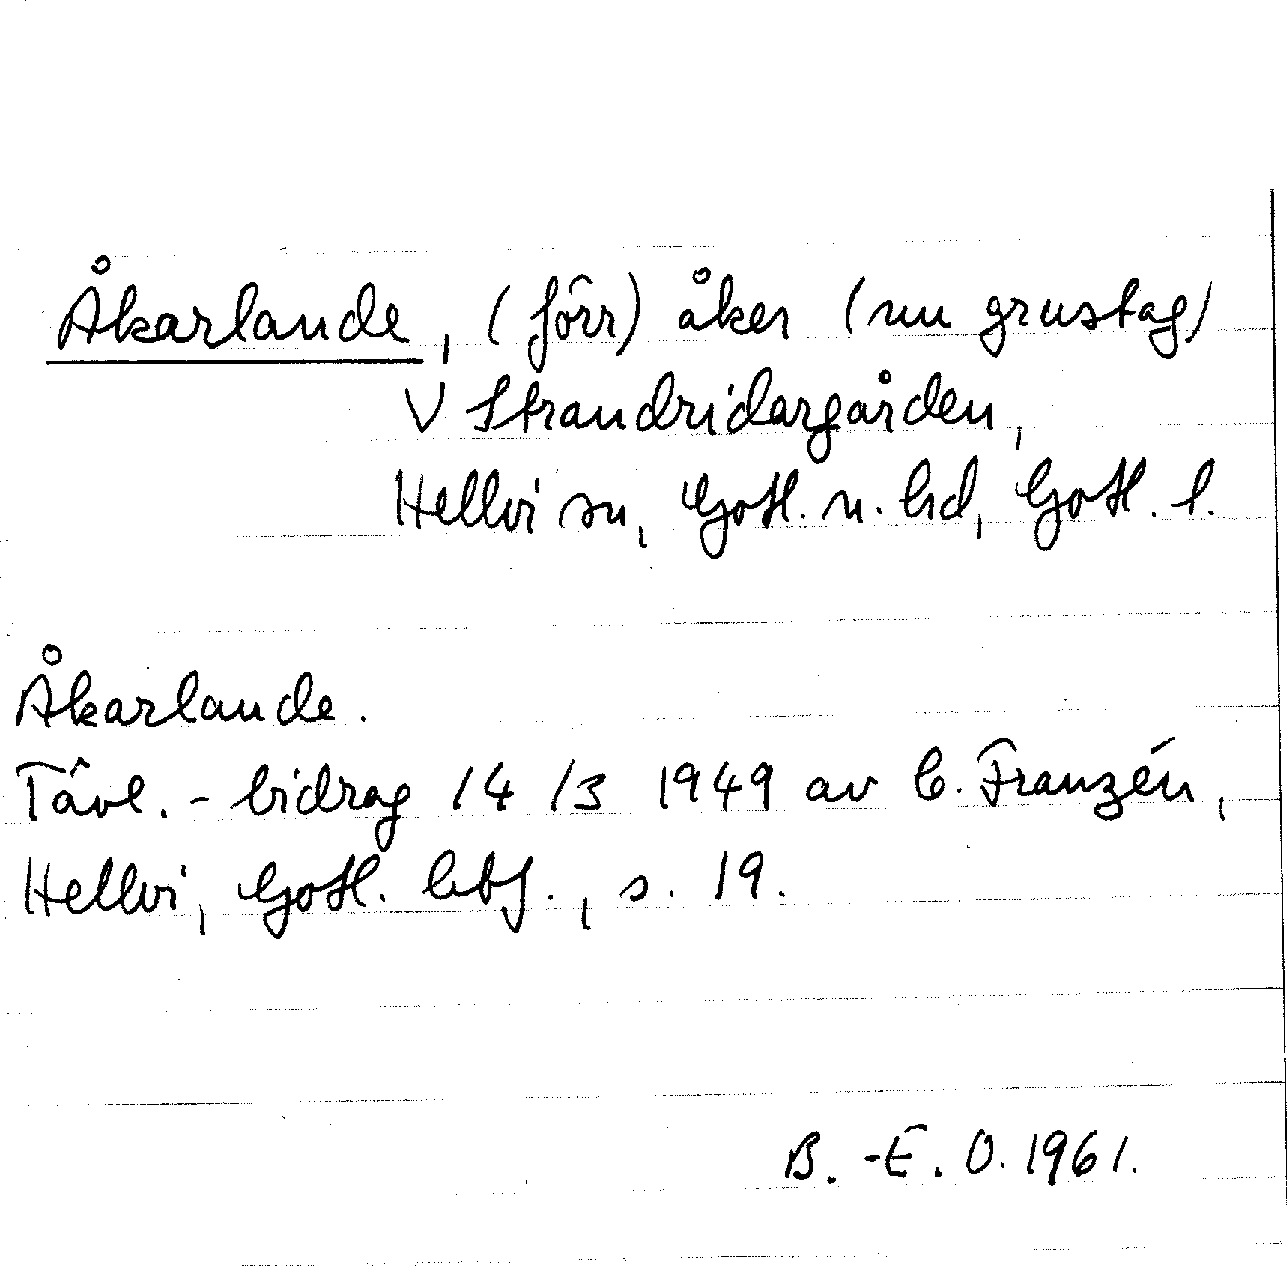 Åkarlande, (förr) åker (nu grustag)
V Strandridargården,
Hellvi sn, Gotl. n. hd, Gotl. l.
Åkarlande.
Tävl. - bidrag 14/3 1949 av C. Franzén,
Hellvi, Gotl. hbf., s. 19.
B. -E. O. 1961.